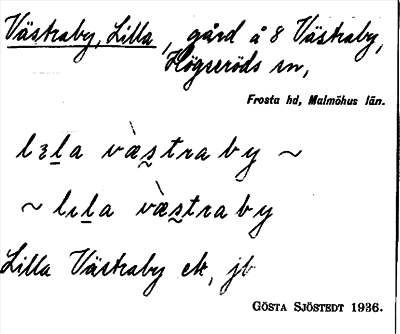 Västraby, Lilla, gård å 8 Västraby,
Högseröds sn,
Frosta hd, Malmöhus län.
lɜl̲a væ̀s̰traby ~
~ lɩl̲a væ̀s̰traby
Lilla Västraby ek, jb
GÖSTA SJÖSTEDT 1936.